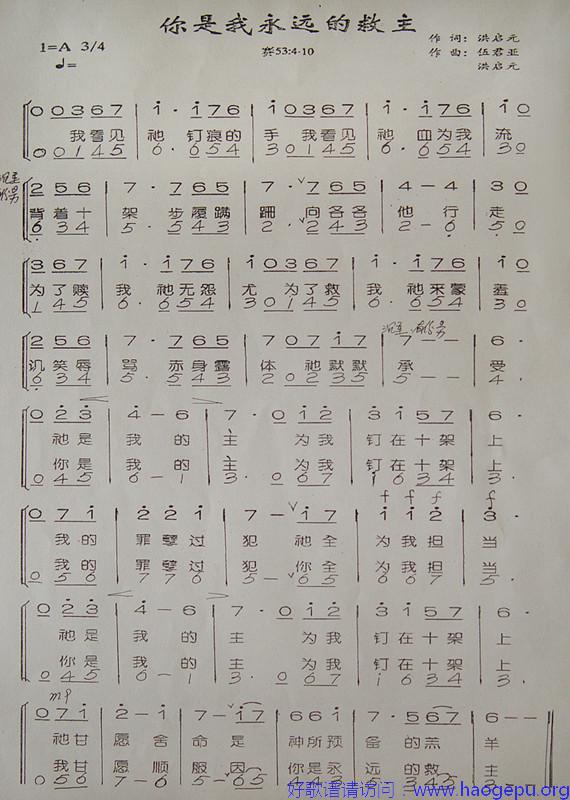 你是我永远的救主
1=A 3/4
赛53:4-10
作词：洪启元
♩=
作曲：伍君亚
洪启元
0 0 3 6 7 | i · i 7 6 | i 0 3 6 7 | i · i 7 6 | i 0
我看见 祂 钉痕的 手 我看见 祂 血为我 流
0 0 1 4 5 | 6 · 6 5 4 | 3 0 1 4 5 | 6 · 6 5 4 | 3 0
2 5 6 | 7 · 7 6 5 | 7 · 7 6 5 | 4 - 4 | 3 0
背着十 架 步履蹒 跚 向各各 他 行 走
6 3 4 | 5 · 5 4 3 | 2 · 2 4 3 | 2 - 6 | 5 0
3 6 7 | i · i 7 6 | i 0 3 6 7 | i · i 7 6 | i 0
为了赎 我 祂无怨 尤 为了救 我 祂来蒙 羞
1 4 5 | 6 · 6 5 4 | 3 0 1 4 5 | 6 · 6 5 4 | 3 0
2 5 6 | 7 · 7 6 5 | 7 0 7 i 7 | 7 - - | 6 ·
讥笑辱 骂 赤身露 体 祂默默 承 受
6 3 4 | 5 · 5 4 3 | 2 0 2 3 5 | 5 - - | 4 ·
0 2 3 | 4 - 6 | 7 · 0 i 2 | 3 i 5 7 | 6 ·
祂是 我 的 主 为我 钉在十架 上
你是 我 的 主 为我 钉在十架 上
0 4 5 | 6 - 1 | 3 · 0 6 7 | 1 6 3 4 | 3 ·
f f f f
0 7 i | 2 2 i | 7 - i 7 | i i 2 | 3 ·
我的 罪孽过 犯 祂全 为我担 当
我的 罪孽过 犯 你全 为我担 当
0 5 6 | 7 7 6 | 5 - 6 5 | 6 6 7 | 5 ·
0 2 3 | 4 - 6 | 7 · 0 i 2 | 3 i 5 7 | 6 ·
祂是 我 的 主 为我 钉在十架 上
你是 我 的 主 为我 钉在十架 上
0 4 5 | 6 - 1 | 3 · 0 6 7 | 1 6 3 4 | 3 ·
mp
0 7 i | 2 - i | 7 - i 7 | 6 6 i | 7 · 5 6 7 | 6 - -
祂甘 愿舍 命是 神所预 备的羔 羊
我甘 愿顺 服因 你是永 远的救 主
0 5 6 | 7 - 6 | 5 - 6 5
好歌谱请访问：www.haogepu.org